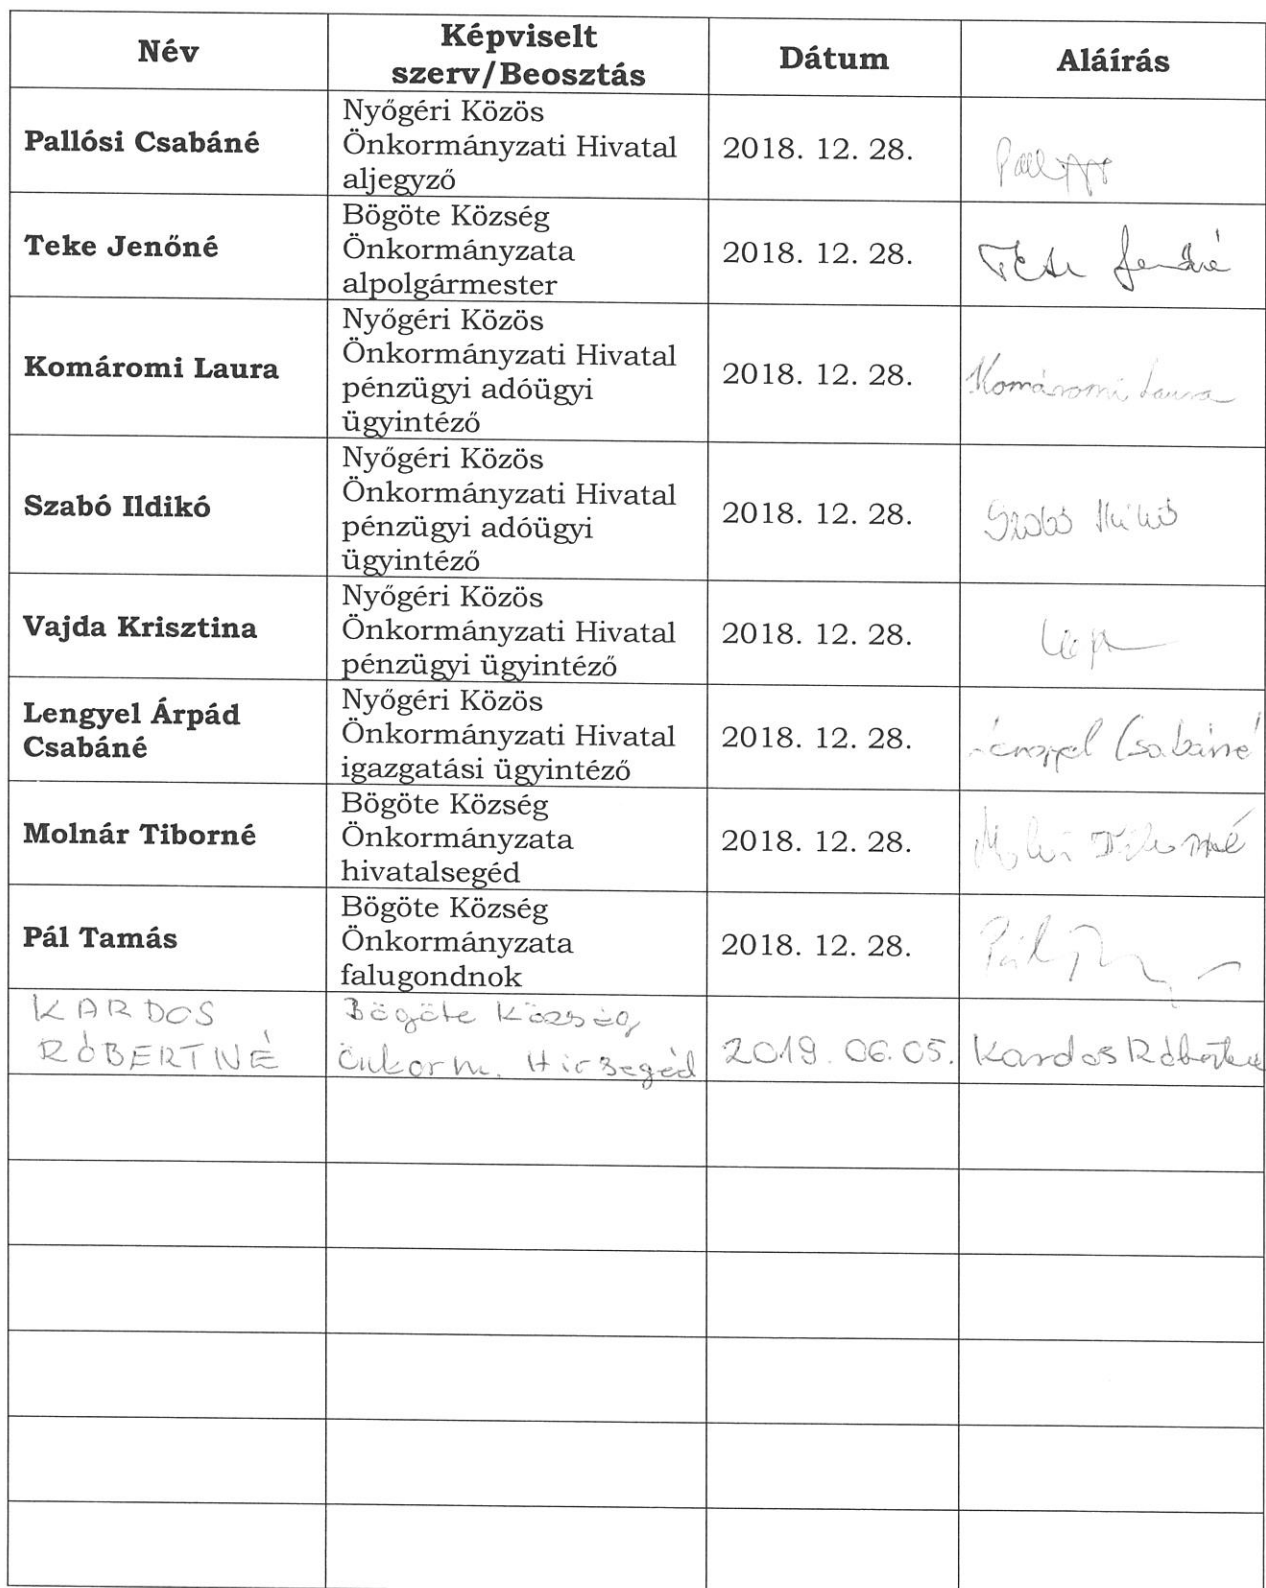 Név
Képviselt
szerv/Beosztás
Dátum
Aláírás
Pallósi Csabáné
Nyőgéri Közös
Önkormányzati Hivatal
aljegyző
2018. 12. 28.
Teke Jenőné
Bögöte Község
Önkormányzata
alpolgármester
2018. 12. 28.
Komáromi Laura
Nyőgéri Közös
Önkormányzati Hivatal
pénzügyi adóügyi
ügyintéző
2018. 12. 28.
Komáromi Laura
Szabó Ildikó
Nyőgéri Közös
Önkormányzati Hivatal
pénzügyi adóügyi
ügyintéző
2018. 12. 28.
Szabó Ildikó
Vajda Krisztina
Nyőgéri Közös
Önkormányzati Hivatal
pénzügyi ügyintéző
2018. 12. 28.
Lengyel Árpád
Csabáné
Nyőgéri Közös
Önkormányzati Hivatal
igazgatási ügyintéző
2018. 12. 28.
Lengyel Csabáné
Molnár Tiborné
Bögöte Község
Önkormányzata
hivatalsegéd
2018. 12. 28.
Pál Tamás
Bögöte Község
Önkormányzata
falugondnok
2018. 12. 28.
KARDOS
RÓBERTNÉ
Bögöte Község
Önkorm.
2019. 06. 05.
Kardos Róbertné